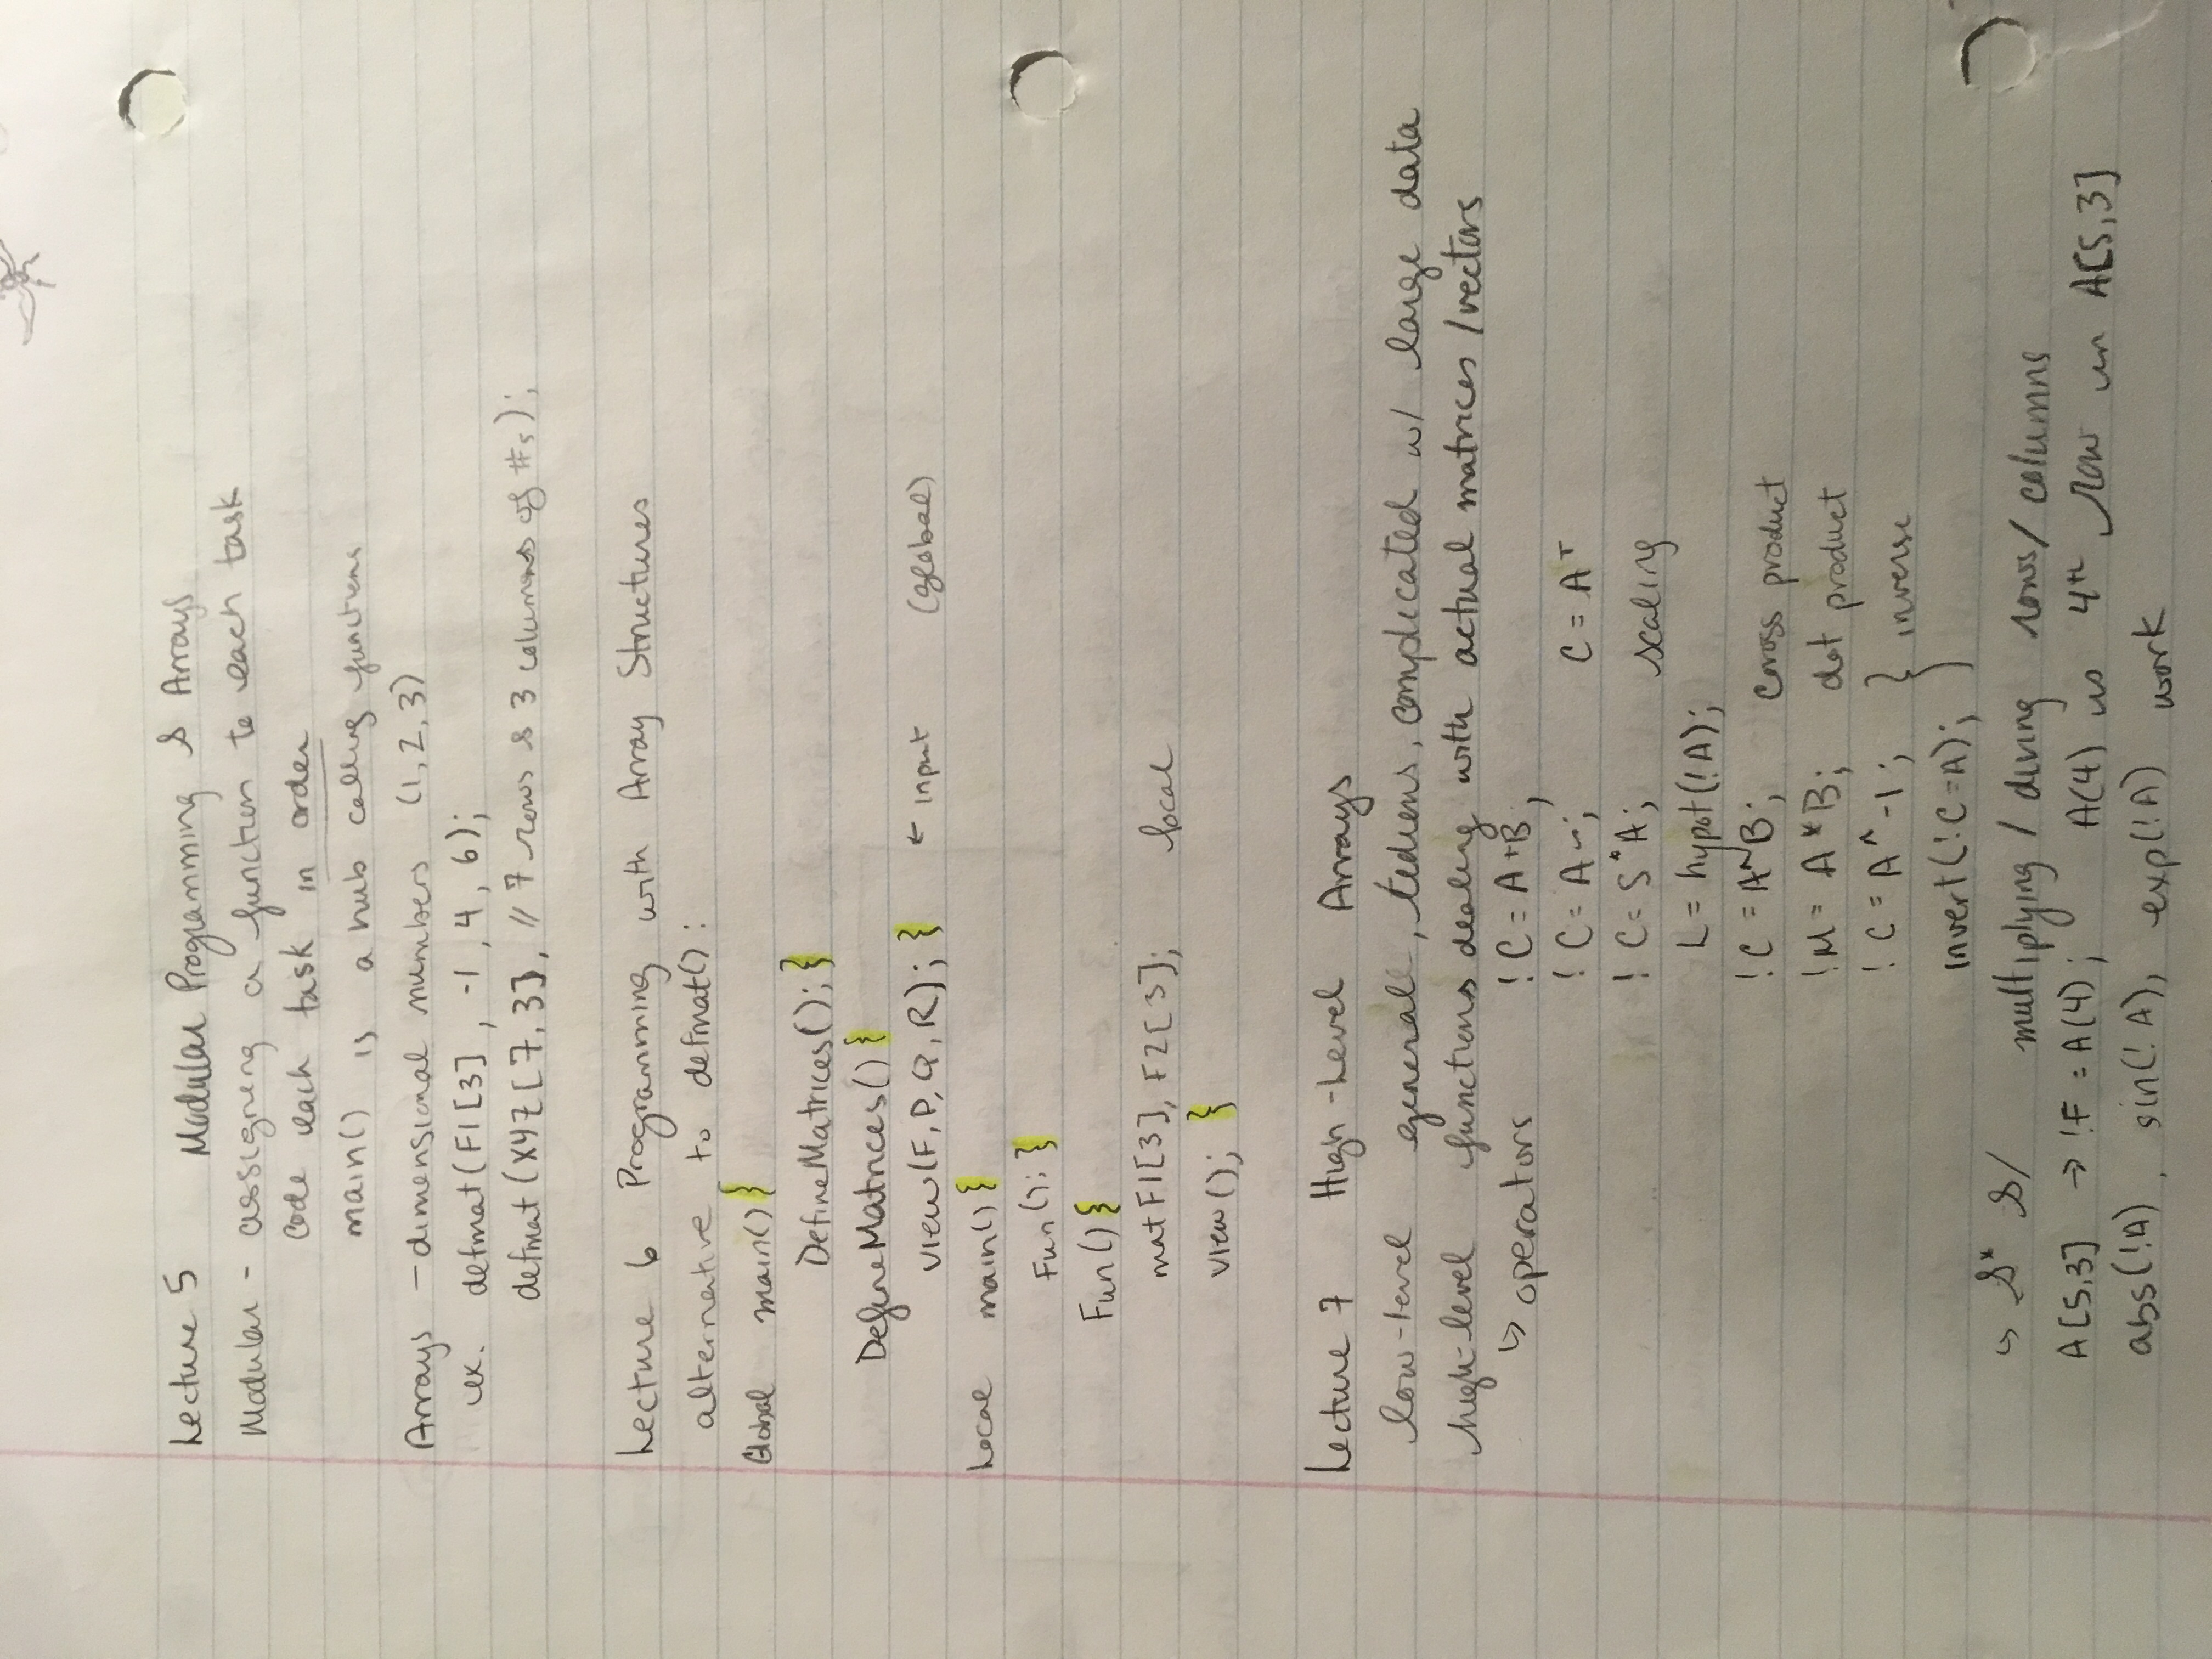 Lecture 5 Modular Programming & Arrays
Modular - assigning a function to each task
code each task in order
main() is a hub calling functions
Arrays - dimensional numbers (1,2,3)
ex. defmat(F1[3], -1, 4, 6);
defmat(XYZ[7,3], // 7 rows & 3 columns of #s);
Lecture 6 Programming with Array Structures
alternative to defmat():
Global main() {
DefineMatrices(); }
DefineMatrices() {
view(F, P, Q, R); } ← input (global)
Local main() {
Fun(); }
Fun() {
mat F1[3], F2[3]; local
view(); }
Lecture 7 High-Level Arrays
low-level general, tedious, complicated w/ large data
high-level functions dealing with actual matrices/vectors
↳ operators !C = A+B;
!C = A~; C = Aᵀ
!C = S*A; scaling
L = hypot(!A);
!C = A^B; cross product
!M = A*B; dot product
!C = A^-1; } inverse
invert(!C=A); }
↳ &* &/ multiplying/diving rows/columns
A[5,3] → !F = A(4); A(4) is 4th row in A[5,3]
abs(!A), sin(!A), exp(!A) work